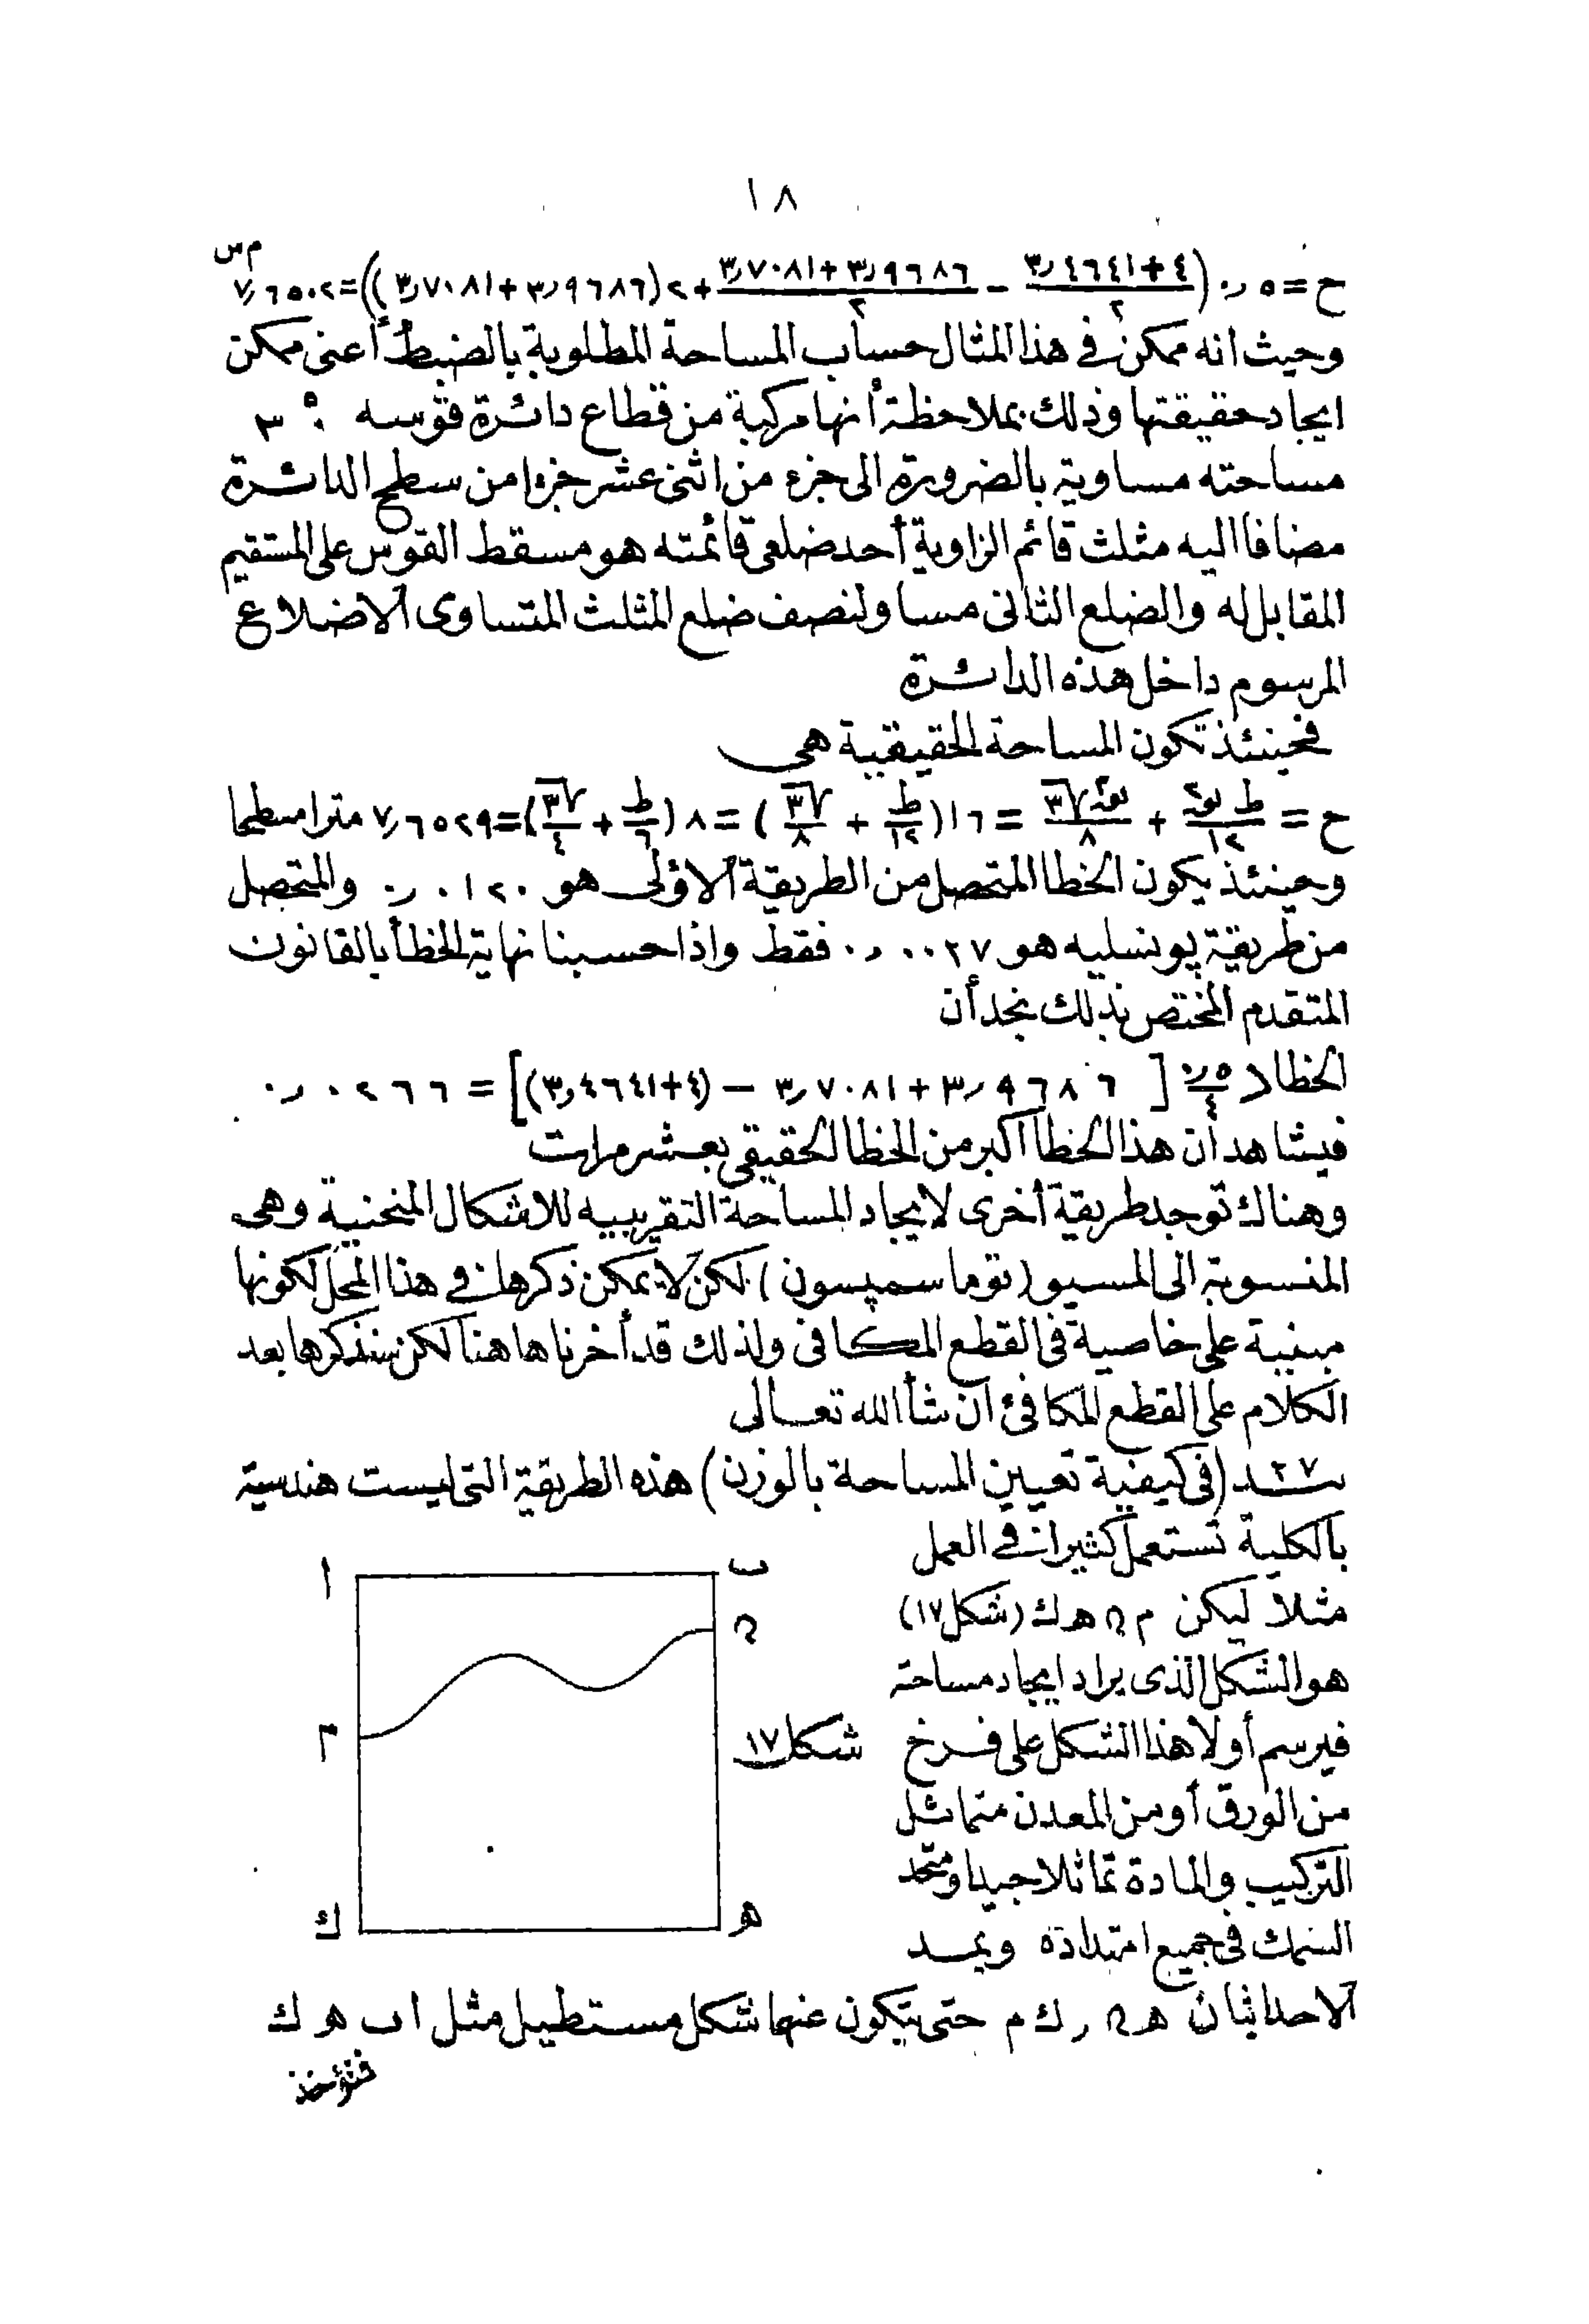 ١٨
ح = ٥ر٠ (٤+٣٫٤٦٤١/٢ − ٣٫٩٦٨٦+٣٫٧٠٨١/٢ + ٢(٣٫٩٦٨٦+٣٫٧٠٨١)) = ٧٫٦٥٠٢ م س
وحيث انه ممكن فى هذا المثال حساب المساحة المطلوبة بالضبط أعنى ممكن
ايجاد حقيقتها وذلك بملاحظة أنها مركبة من قطاع دائرة قوسه ٣٠°
مساحته مساوية بالضرورة الى جزء من اثنى عشر جزءا من سطح الدائرة
مضافا اليه مثلث قائم الزاوية أحد ضلعى قائمته هو مسقط القوس على المستقيم
المقابل له والضلع الثانى مساو لنصف ضلع المثلث المتساوى الاضلاع
المرسوم داخل هذه الدائرة
فحينئذ تكون المساحة الحقيقية هى
ح = ط نو٢/١٢ + نو٢√٣/٨ = ١٦(ط/١٢ + √٣/٨) = ٨(ط/٦ + √٣/٤) = ٧٫٦٥٢٩ مترا مسطحا
وحينئذ يكون الخطا المتحصل من الطريقة الاولى هو ٠١٢٠ر٠ والمتحصل
من طريقة پونسليه هو ٠٠٢٧ر٠ فقط واذا حسبنا نهاية الخطأ بالقانون
المتقدم المختص بذلك نجد أن
الخطا > ٥ر٠/٤ [٣٫٩٦٨٦+٣٫٧٠٨١ − (٤+٣٫٤٦٤١)] = ٠٢٦٦ر٠
فيشاهد أن هذا الخطأ اكبر من الخطا الحقيقى بعشر مرات
وهناك توجد طريقة أخرى لايجاد المساحة التقريبيه للاشكال المنحنية وهى
المنسوبة الى المسيو (توما سمپسون) لكن لا يمكن ذكرها فى هذا المحل لكونها
مبنية على خاصية فى القطع المكافئ ولذلك قد أخرناها هنا لكن سنذكرها بعد
الكلام على القطع المكافئ ان شأ الله تعالى
٢٧ بند (فى كيفية تعيين المساحة بالوزن) هذه الطريقة التى ليست هندسية
بالكلية تستعمل كثيرا فى العمل
مثلا ليكن م ن ه ك (شكل ١٧)
هو الشكل الذى يراد ايجاد مساحته
فيرسم أولا هذا الشكل على فرخ
من الورق أو من المعدن متماثل
التركيب والمادة تماثلا جيدا ومتحد
السمك فى جميع امتداده ويمد
الاحداثيان ه ن ر ك م حتى يتكون عنها شكل مستطيل مثل ا ب ه ك
فتؤخذ
ا
ب
ن
م
شكل ١٧
ك
ه